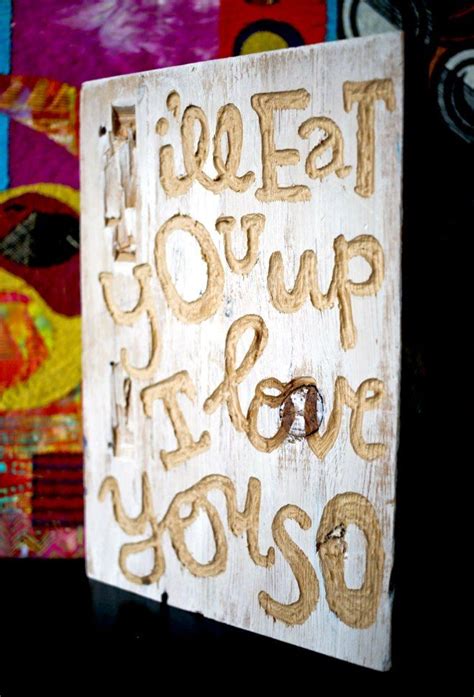 i'll EaT
yOu up
I love
you SO